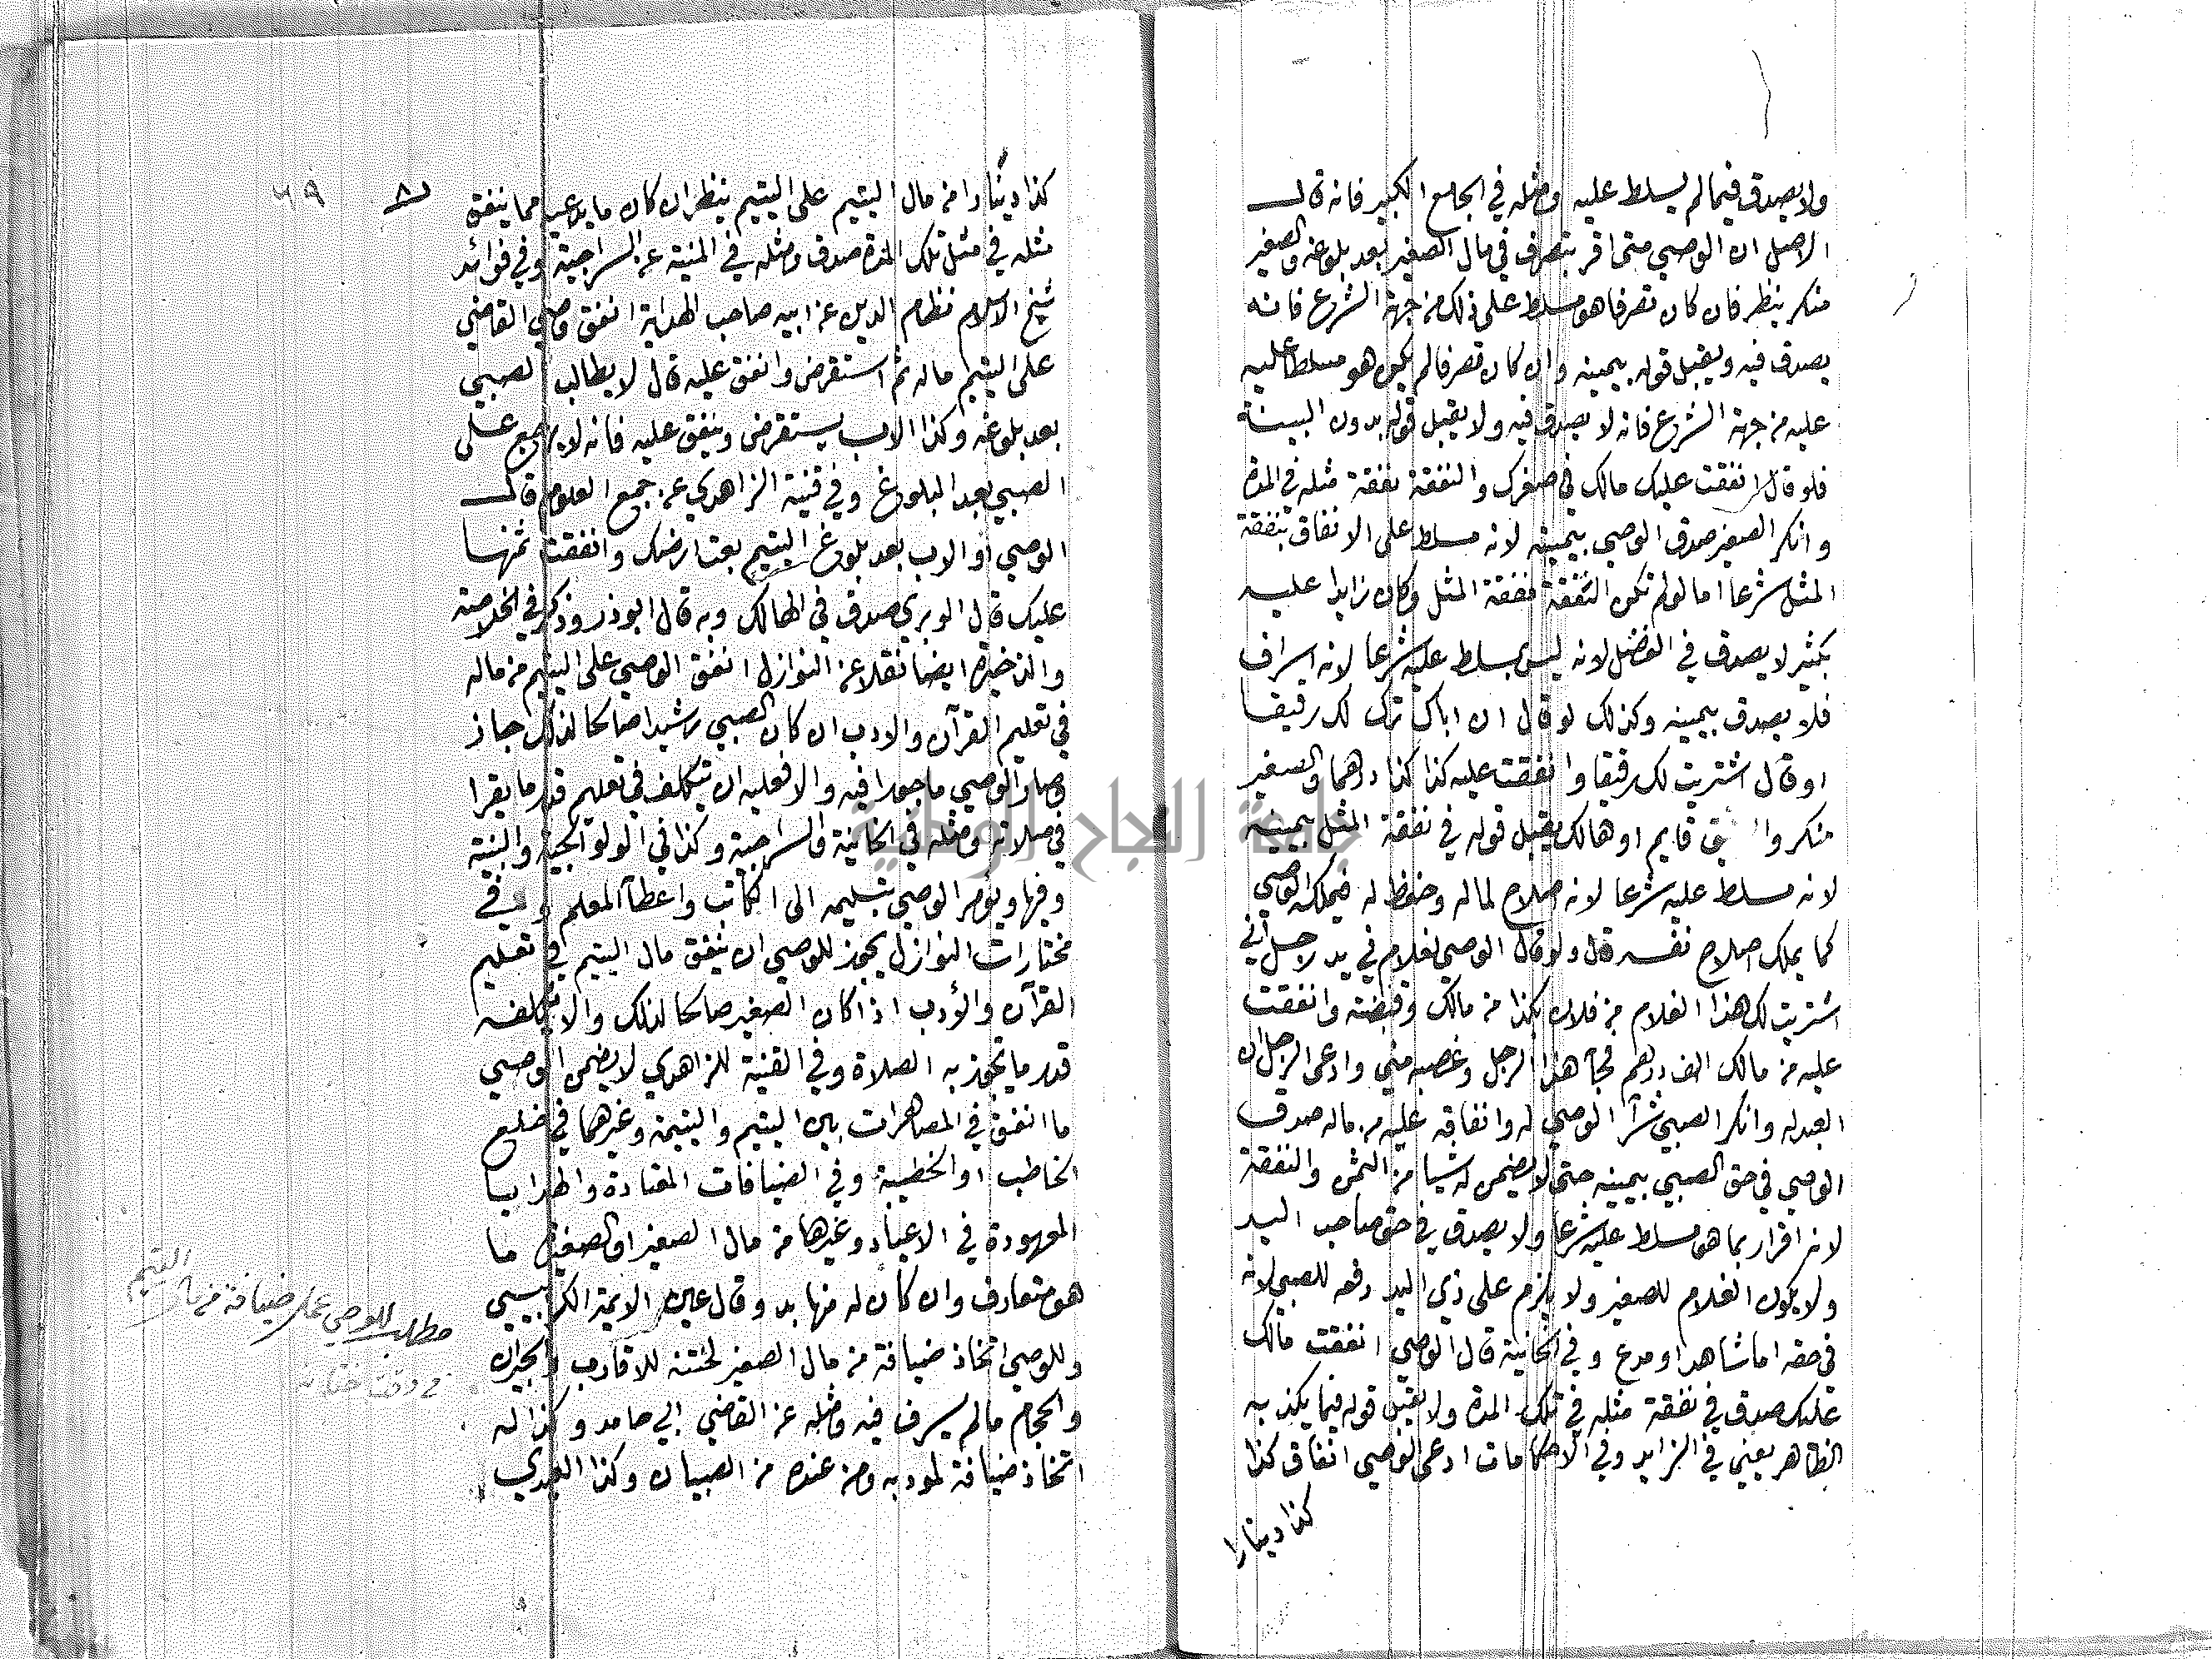 ولا يصدق فيما لم يسلط عليه ومثله في الجامع الكبير فانه قال
الاصل ان الوصي متى اقر بتصرف في مال الصغير بعد بلوغه والصغير
منكر ينظر فان كان تصرفا هو مسلط على ذلك من جهة الشرع فانه
يصدق فيه ويقبل قوله بيمينه وان كان تصرفا لم يكن هو مسلطا عليه
عليه من جهة الشرع فانه لا يصدق فيه ولا يقبل قوله بدون البينة
فلو قال انفقت عليك مالك في صغرك والنفقة نفقة مثله في المدة
وانكر الصغير صدق الوصي بيمينه لانه مسلط على الانفاق بنفقة
المثل شرعا اما لو لم تكن النفقة نفقة المثل وكان زايدا عليه
بكثير لا يصدق في الفضل لانه ليس بمسلط عليه شرعا لانه اسراف
فلا يصدق بيمينه وكذلك لو قال ان اباك ترك لك رقيقا
او قال اشتريت لك رقيقا وانفقت عليه كذا كذا درهما والصغير
منكر وا يق قايم او هالك يقبل قوله في نفقة المثل بيمينه
لانه مسلط عليه شرعا لانه اصلاح لماله وحفظ له فيملكه الوصي
كما يملك اصلاح نفسه قال ولو قال الوصي لغلام في يد رجل اني
اشتريت لك هذا الغلام من فلان بكذا من مالك وقبضته وانفقت
عليه من مالك الف درهم فجآ هذا الرجل وغصبه مني وادعى الرجل ان
العبد له وانكر الصبي شرآ الوصي له وانفاقه عليه من ماله صدق
الوصي في حق الصبي بيمينه حتى لا يضمن له شيا من الثمن والنفقة
لانه اقرار بما هو مسلط عليه شرعا ولا يصدق في حق صاحب اليد
ولا يكون الغلام للصغير ولا يلزم على ذي اليد دفعه للصبي لانه
في حقه اما شاهد او مدع وفي الخانية قال الوصي انفقت مالك
عليك صدق في نفقة مثله في تلك المدة ولا يقبل قوله فيما يكذبه
الظاهر يعني في الزايد وفي الاحكامات ادعى الوصي انفاق كذا
كذا دينارا
٦٩
كذا دينارا من مال اليتيم على اليتيم ينظر ان كان ما يدعيه مما ينفق
مثله في مثل تلك المدة صدق ومثله في المنية عن السراجية وفي فوائد
شيخ الاسلام نظام الدين عن ابيه صاحب الهداية انفق وصي القاضي
على اليتيم ماله ثم استقرض وانفق عليه قال لا يطالب الصبي
بعد بلوغه وكذا الاب يستقرض وينفق عليه فانه لا يرجع على
الصبي بعد البلوغ وفي قنية الزاهدي عن جمع العلوم قال
الوصي او الاب بعد بلوغ اليتيم بعت ارضك وانفقت ثمنها
عليك قال الوبري صدق في الهالك وبه قال ابوذر وذكر في الخلاصة
والذخيرة ايضا نقلا عن النوازل انفق الوصي على اليتيم من ماله
في تعليم القرآن والادب ان كان الصبي رشيدا صالحا لذلك جاز
وصار الوصي ماجورا فيه والا فعليه ان يتكلف في تعليم قدر ما يقرا
في صلاته ومثله في الخانية والسراجية وكذا في الولوالجية والبنية
وفيها ويؤمر الوصي بتسليمه الى الكاتب واعطآ المعلم وفي
مختارات النوازل يجوز للوصي ان ينفق مال اليتيم في تعليم
القرآن والأدب اذا كان الصغير صالحا لذلك والا يكلفه
قدر ما تجوز به الصلاة وفي القنية للزاهدي لا يضمن الوصي
ما انفق في المصاهرات بين اليتيم واليتيمة وغيرهما في خلع
الخاطب او الخطيبة وفي الضيافات المعتادة والهدايا
المعهودة في الاعياد وغيرها من مال الصغير او الصغيرة ما
هو متعارف وان كان له منها بد وقال عين الايمة الكرابيسي
وللوصي اتخاذ ضيافة من مال الصغير لختنه للاقارب والجيران
والحجام مالم يسرف فيه ومثله عن القاضي ابي حامد وكذا له
اتخاذ ضيافة لمودبه ومن عنده من الصبيان وكذا العيدي
مطلب للوصي عمل ضيافة من مال اليتيم
في وقت ختانه
جامعة النجاح الوطنية